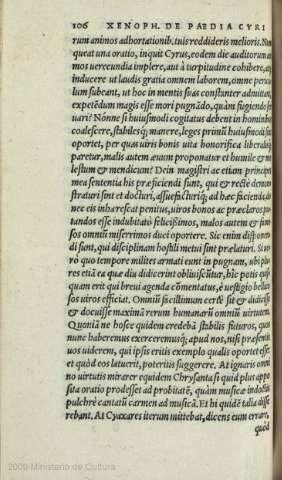 106 XENOPH. DE PÆDIA CYRI
rum animos adhortationib. tuis reddideris melioris. Nun
queat una oratio, inquit Cyrus, eodem die auditorum ani
mos uerecundia implere, aut à turpitudine cohibere, aut
inducere ut laudis gratia omnem laborem, omne pericu
lum subeant, ut hoc in mentis suas constanter admittant,
expetēdum magis esse mori pugnādo, quàm fugiendo ser
uari? Nónne si huiusmodi cogitatus debent in hominibus
coalescere, stabilesq; manere, leges primùm huiusmodi sint
oportet, per quas uiris bonis uita honorifica liberalisq;
paretur, malis autem æuum proponatur et humile & mo
lestum & mendicum? Dein magistri ac etiam principes
mea sententia his præficiendi sunt, qui & rectè demon
straturi sint et docturi, assuefacturiq; ad hæc faciendum, do
nec eis inhærescat penitus, uiros bonos ac præclaros pu
tandos esse indubitatò felicissimos, malos autem & famo
sos omniū miserrimos duci oportere. Sic enim disponen
di sunt, qui disciplinam hostili metui sint prælaturi. Si ue
rò quo tempore milites armati eunt in pugnam, ubi plu
res etiā ea quæ diu didicerint obliuiscūtur, hîc potis quis
quam erit qui breui agenda cōmentatus, è uestigio bellico
sos uiros efficiat. Omniū facillimum certè sit & didicisse
& docuisse maximā rerum humanarū omniū uirtutem.
Quoniā ne hosce quidem credebā stabilis futuros, quos
nunc habemus exercemusq; apud nos, nisi præsentis
uos uiderem, qui ipsis eritis exemplo qualis oportet esse:
et quòd eos latuerit, poteritis suggerere. At ignaris omni
no uirtutis mirarer equidem Chrysanta si quid plus appo
sita oratio prodesset ad probitatē, quàm musicæ indoctis
pulchrè cantatū carmen ad musicā. Et hi quidē talia disse
rebant. At Cyaxares iterum mittebat, dicens eum errare,
quòd
2009 Ministerio de Cultura